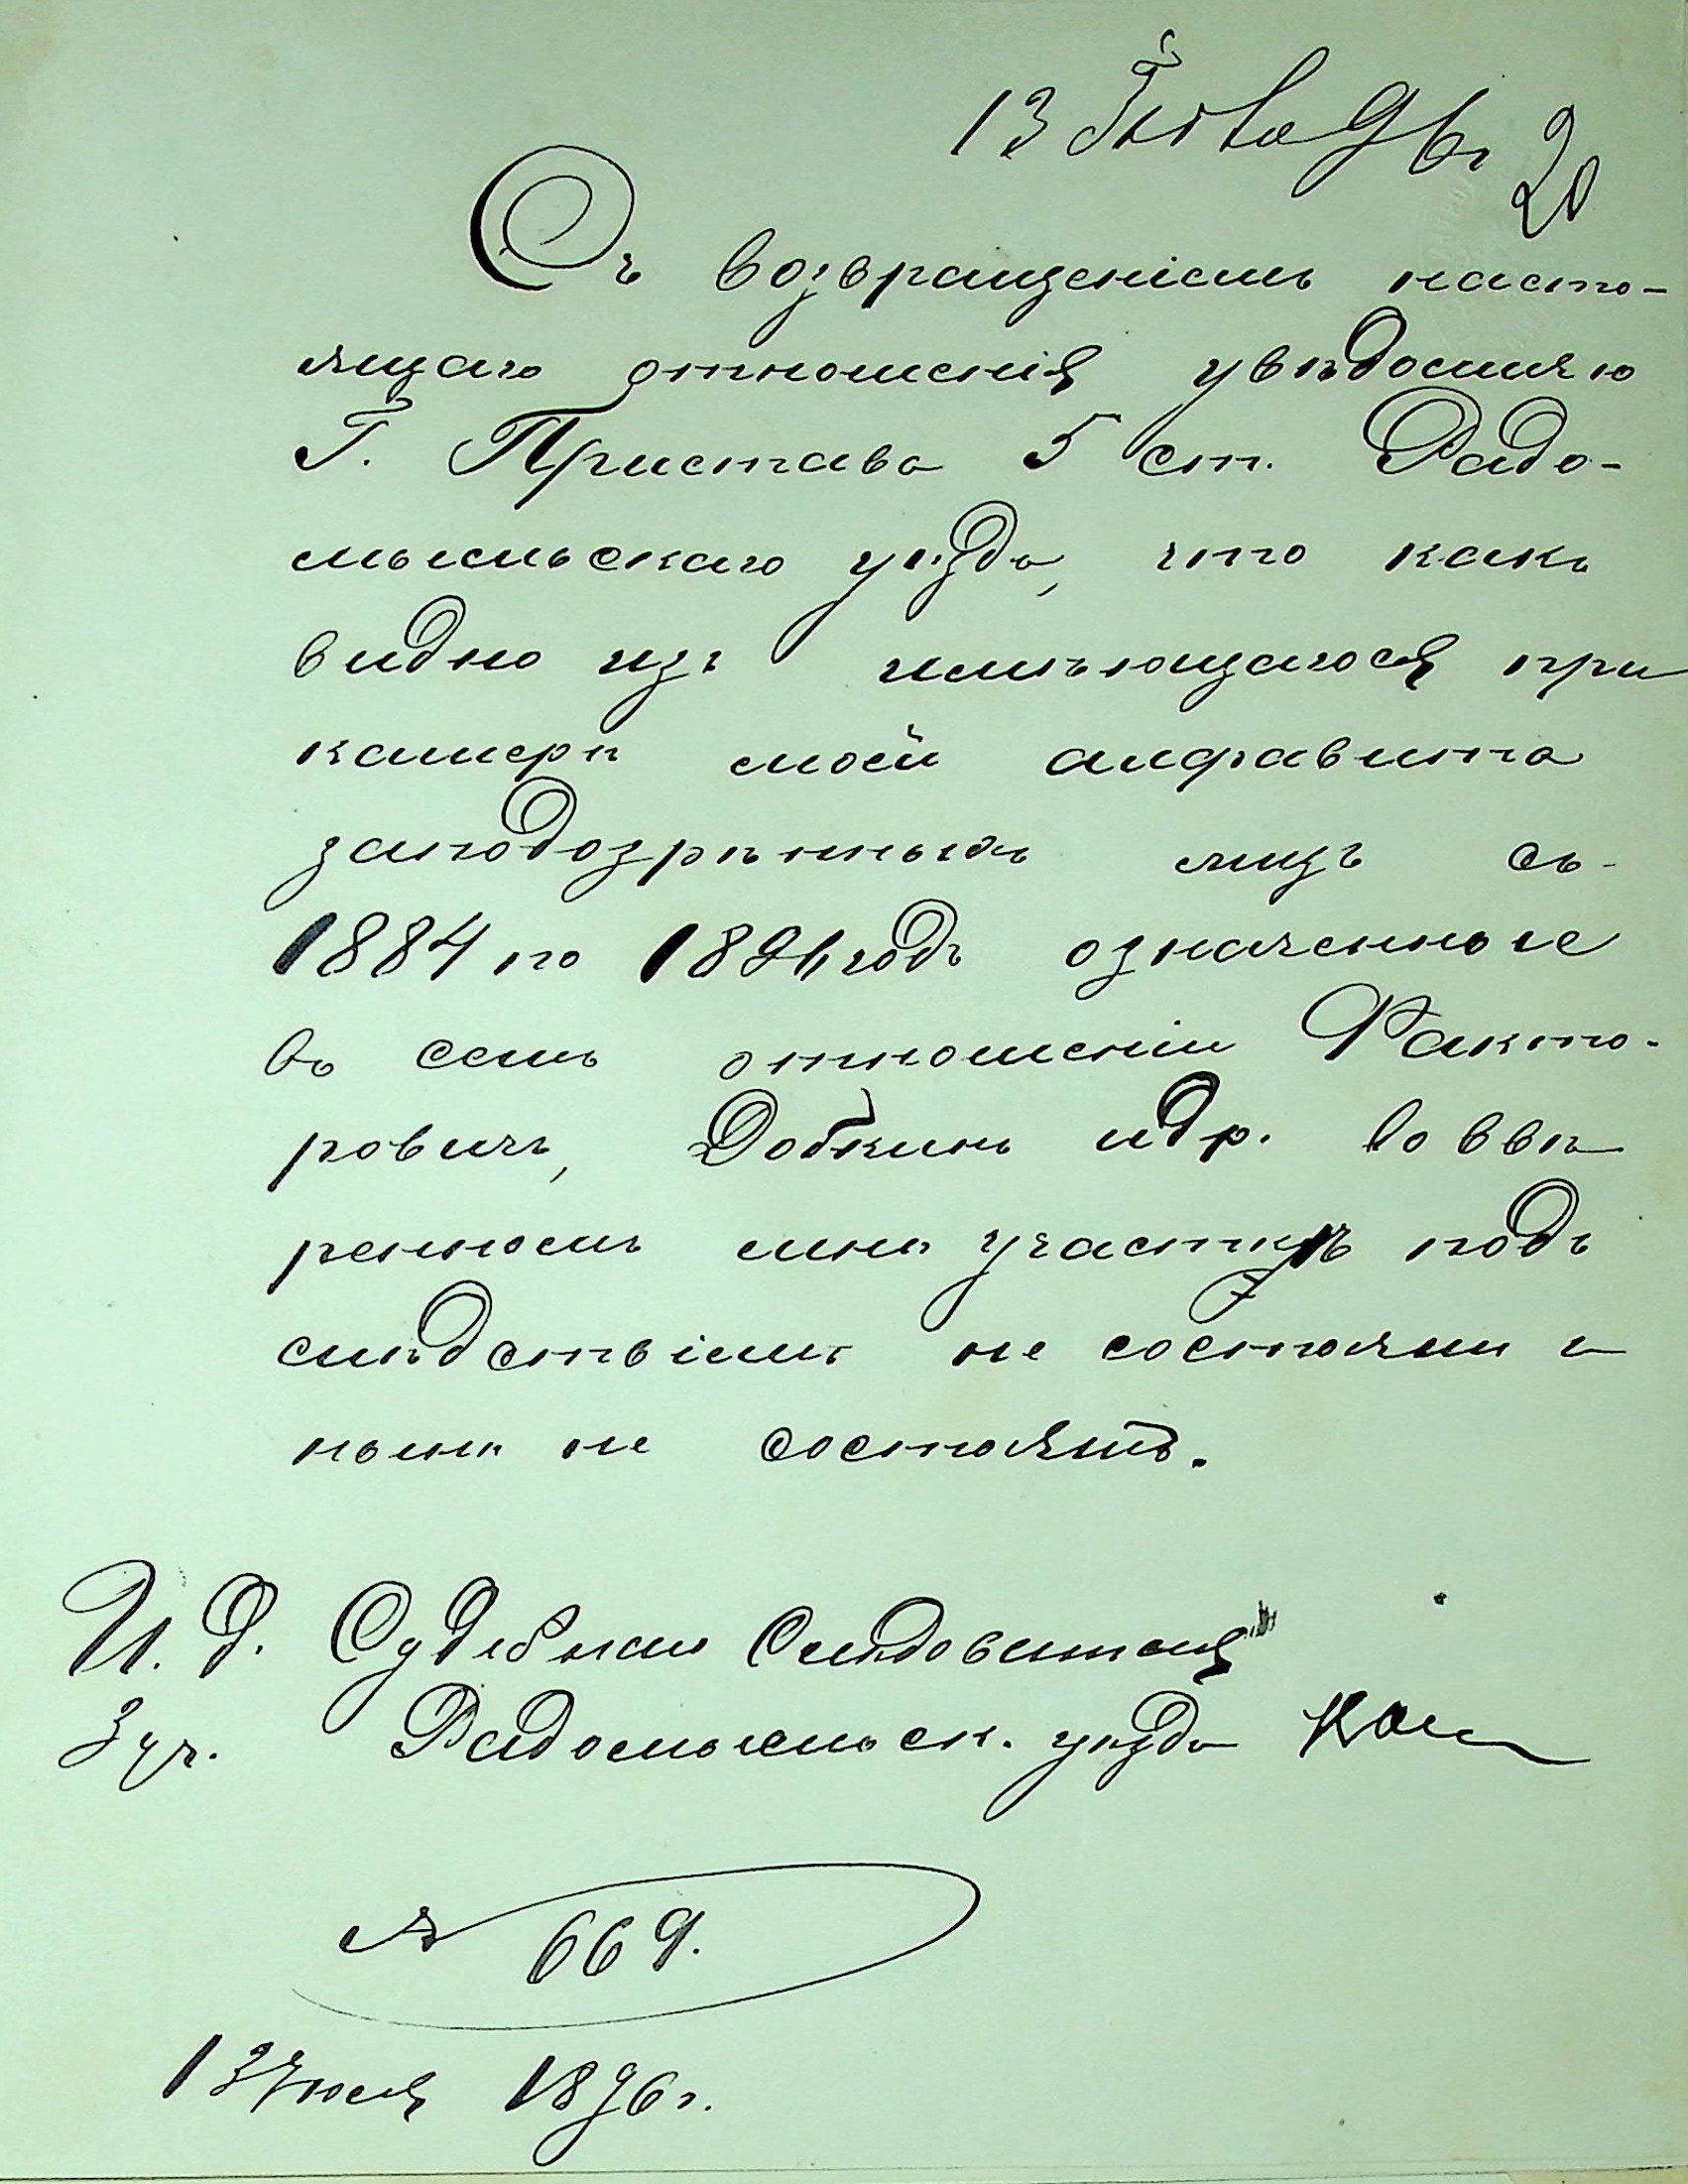 13 Июля 96 г.
20
Съ возвращеніемъ насто-
ящаго отношенія увѣдомляю
Г. Пристава 5 ст. Радо-
мысльскаго уѣзда, что какъ
видно изъ имѣющагося при
камерѣ моей алфавита
заподозрѣнныхъ лицъ съ
1884 по 1896 годъ означенные
въ семъ отношеніи Факто-
ровичъ, Добкинъ и др. во ввѣ
ренномъ мнѣ участкѣ подъ
слѣдствіемъ не состояли и
нынѣ не состоятъ.
И. Д. Судебнаго Слѣдователя
3 уч. Радомысльск. уѣзда
№ 669.
13 Июля 1896 г.